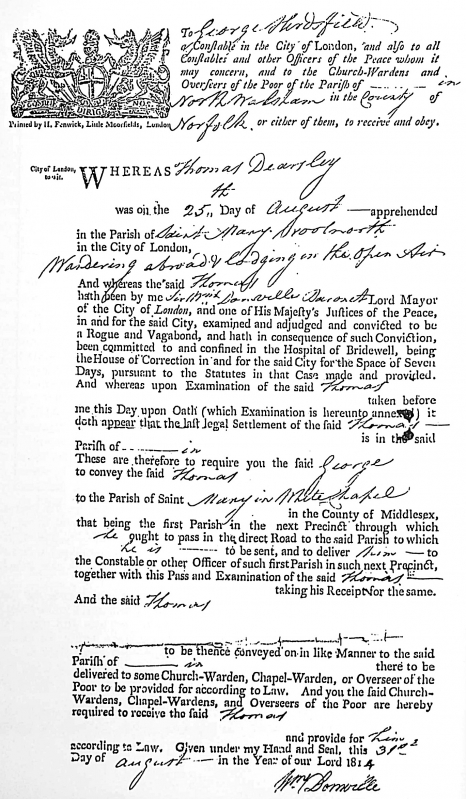 To George
a Constable in the City of London, and also to all
Constables and other Officers of the Peace whom it
may concern, and to the Church-Wardens and
Overseers of the Poor of the Parish of in
North Walsham in the County of
Norfolk or either of them, to receive and obey.
Printed by H. Fenwick, Little Moorfields, London
City of London, to wit.
WHEREAS Thomas Dearsley
was on the 25th Day of August apprehended
in the Parish of Saint Mary Woolnorth
in the City of London,
Wandering abroad & lodging in the Open Air
And whereas the said Thomas
hath been by me Sir Wm Domville Baronet Lord Mayor
of the City of London, and one of His Majesty's Justices of the Peace,
in and for the said City, examined and adjudged and convicted to be
a Rogue and Vagabond, and hath in consequence of such Conviction,
been committed to and confined in the Hospital of Bridewell, being
the House of Correction in and for the said City for the Space of Seven
Days, pursuant to the Statutes in that Case made and provided.
And whereas upon Examination of the said Thomas
taken before
me this Day upon Oath (which Examination is hereunto annexed) it
doth appear that the last legal Settlement of the said Thomas
is in the said
Parish of in
These are therefore to require you the said George
to convey the said Thomas
to the Parish of Saint Mary in White Chapel
in the County of Middlesex,
that being the first Parish in the next Precinct through which
he ought to pass in the direct Road to the said Parish to which
he is to be sent, and to deliver him to
the Constable or other Officer of such first Parish in such next Precinct,
together with this Pass and Examination of the said Thomas
taking his Receipt for the same.
And the said Thomas
to be thence conveyed on in like Manner to the said
Parish of in there to be
delivered to some Church-Warden, Chapel-Warden, or Overseer of the
Poor to be provided for according to Law. And you the said Church-
Wardens, Chapel-Wardens, and Overseers of the Poor are hereby
required to receive the said Thomas
and provide for him
according to Law. Given under my Hand and Seal, this 31st
Day of August in the Year of our Lord 1814
Wm Domville